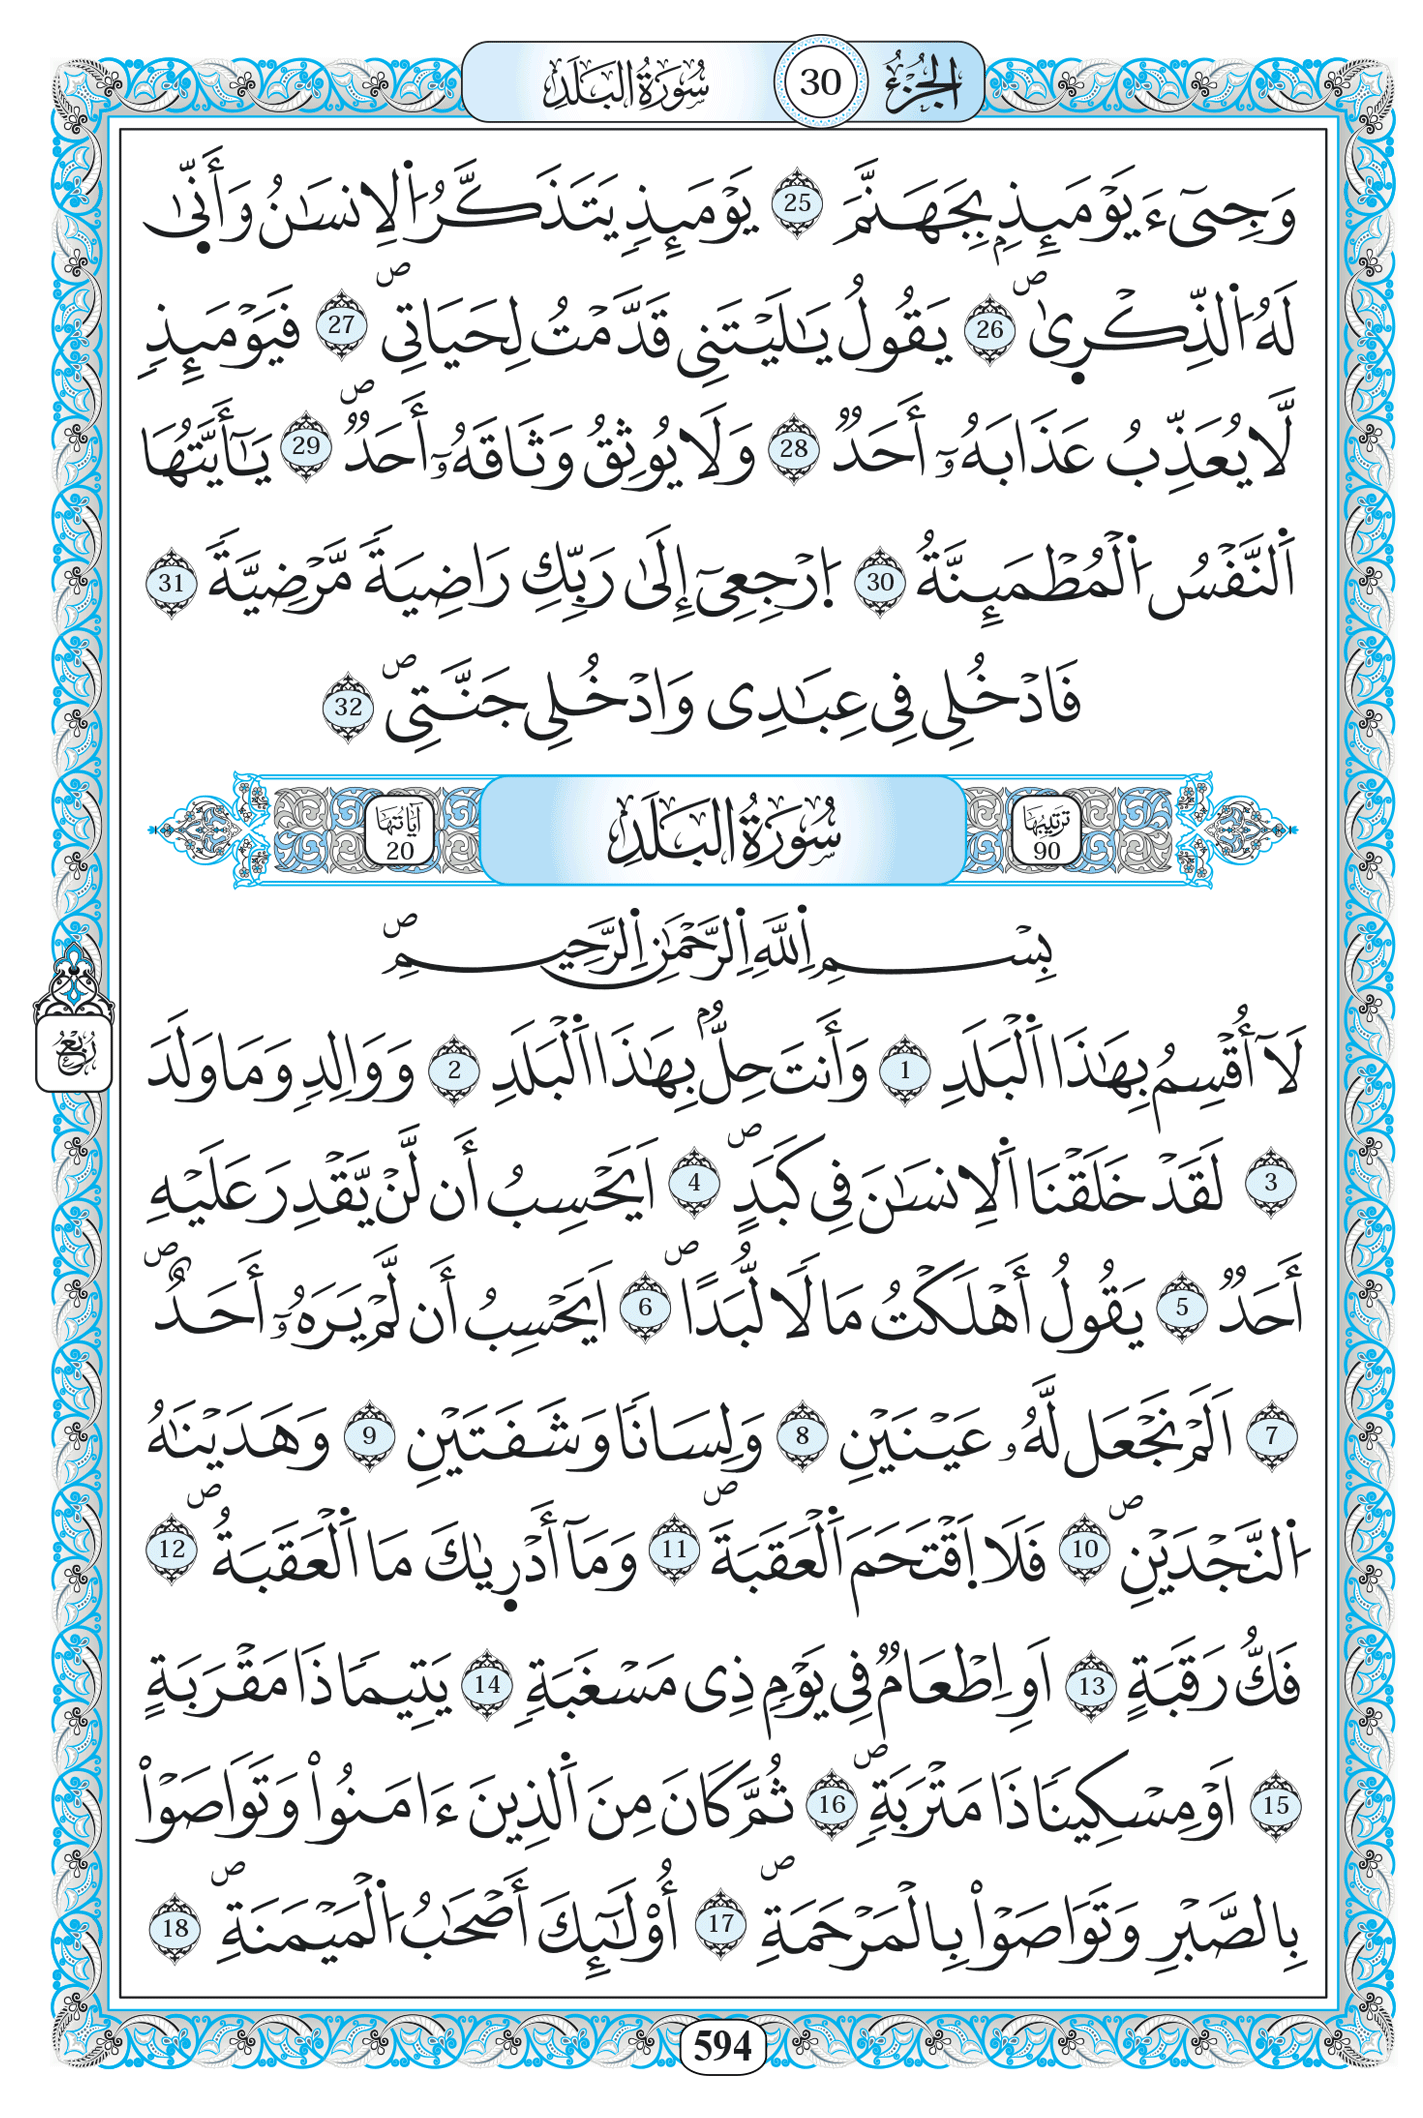 الجُزْءُ 30 سُورَةُ البَلَدِ
وَجِےٓءَ يَوْمَئِذِۢ بِجَهَنَّمَ 25 يَوْمَئِذٖ يَتَذَكَّرُ اُ۬لِانسَٰنُ وَأَنّ۪يٰ
لَهُ اُ۬لذِّكْر۪يٰۖ 26 يَقُولُ يَٰلَيْتَنِے قَدَّمْتُ لِحَيَاتِےۖ 27 فَيَوْمَئِذٖ
لَّا يُعَذِّبُ عَذَابَهُۥٓ أَحَدٞ 28 وَلَا يُوثِقُ وَثَاقَهُۥٓ أَحَدٞۖ 29 يَٰٓأَيَّتُهَا
اَ۬لنَّفْسُ اُ۬لْمُطْمَئِنَّةُ 30 اُ۪رْجِعِےٓ إِلَىٰ رَبِّكِ رَاضِيَةٗ مَّرْضِيَّةٗ 31
فَادْخُلِے فِے عِبَٰدِے وَادْخُلِے جَنَّتِےۖ 32
تَرتِيبُهَا 90 سُورَةُ البَلَدِ آيَاتُهَا 20
بِسْمِ اِ۬للَّهِ اِ۬لرَّحْمَٰنِ اِ۬لرَّحِيمِۖ
رُبُعُ
لَآ أُقْسِمُ بِهَٰذَا اَ۬لْبَلَدِ 1 وَأَنتَ حِلُّۢ بِهَٰذَا اَ۬لْبَلَدِ 2 وَوَالِدٖ وَمَا وَلَدَ
3 لَقَدْ خَلَقْنَا اَ۬لِانسَٰنَ فِے كَبَدٍۖ 4 اَيَحْسِبُ أَن لَّنْ يَّقْدِرَ عَلَيْهِ
أَحَدٞ 5 يَقُولُ أَهْلَكْتُ مَالاٗ لُّبَداًۖ 6 اَيَحْسِبُ أَن لَّمْ يَرَهُۥٓ أَحَدٌۖ
7 اَلَمْ نَجْعَل لَّهُۥ عَيْنَيْنِ 8 وَلِسَاناٗ وَشَفَتَيْنِ 9 وَهَدَيْنَٰهُ
اُ۬لنَّجْدَيْنِۖ 10 فَلَا اَ۪قْتَحَمَ اَ۬لْعَقَبَةَۖ 11 وَمَآ أَدْر۪يٰكَ مَا اَ۬لْعَقَبَةُۖ 12
فَكُّ رَقَبَةٍ 13 اَوِ اِطْعَٰمٞ فِے يَوْمٖ ذِے مَسْغَبَةٖ 14 يَتِيماٗ ذَا مَقْرَبَةٍ
15 اَوْ مِسْكِيناٗ ذَا مَتْرَبَةٖۖ 16 ثُمَّ كَانَ مِنَ اَ۬لذِينَ ءَامَنُواْ وَتَوَاصَوْاْ
بِالصَّبْرِ وَتَوَاصَوْاْ بِالْمَرْحَمَةِۖ 17 أُوْلَٰٓئِكَ أَصْحَٰبُ اُ۬لْمَيْمَنَةِۖ 18
594